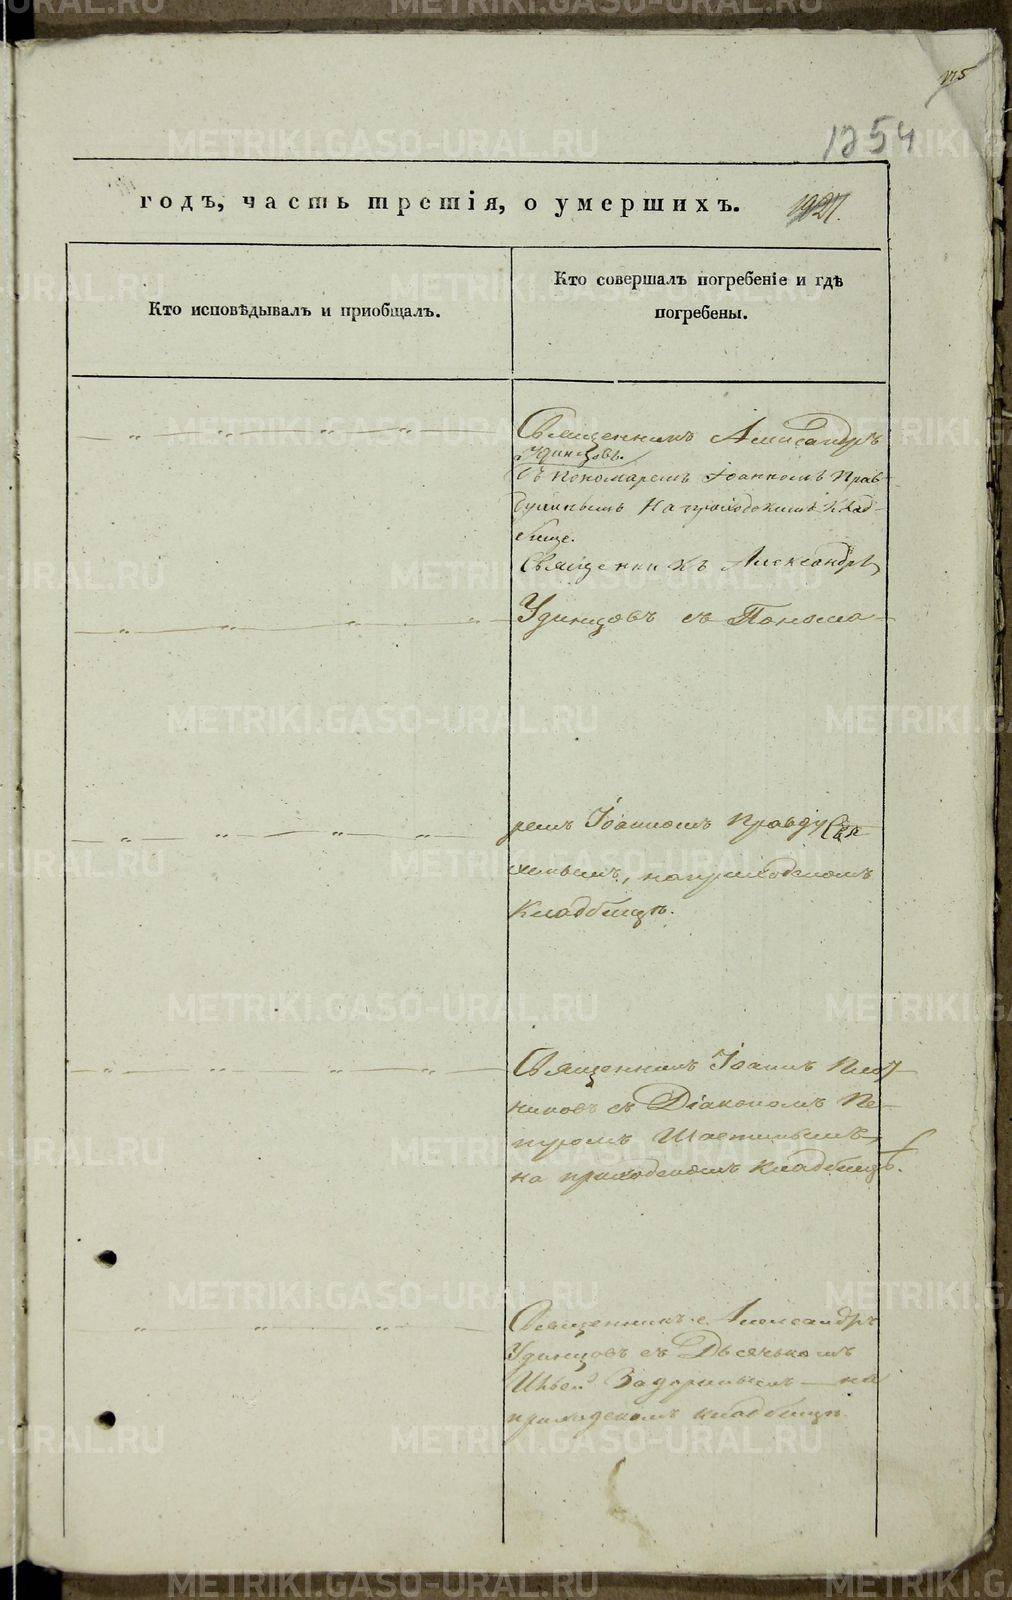 175
1254
годъ, часть третія, о умершихъ.
Кто исповѣдывалъ и приобщалъ.
Кто совершалъ погребеніе и гдѣ
погребены.
Священникъ Александръ
Удинцовъ.
съ пономаремъ Іоанномъ Прав-
на приходскомъ клад-
бище.
Священникъ Александръ
Удинцовъ съ Понома-
ремъ Іоанномъ Правду
хинымъ, на приходскомъ
кладбищѣ.
Священникъ Іоаннъ Плот
никовъ съ Діакономъ Пе-
тромъ
на приходскомъ кладбищѣ.
Священникъ Александръ
Удинцовъ съ Дьячкомъ
Задоринымъ на
приходскомъ кладбищѣ
METRIKI.GASO-URAL.RU